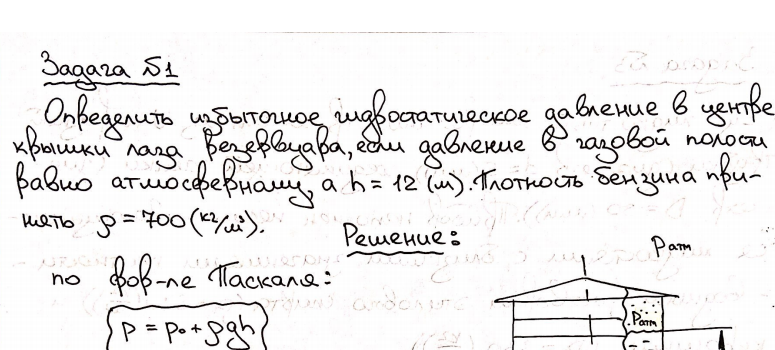 Задача №1
Определить избыточное гидростатическое давление в центре
крышки лаза резервуара, если давление в газовой полости
равно атмосферному, а h = 12 (м). Плотность бензина при-
нять ρ = 700 (кг/м³).
Решение:
по фор-ле Паскаля:
Pатм
p = p₀ + ρgh
Pатм